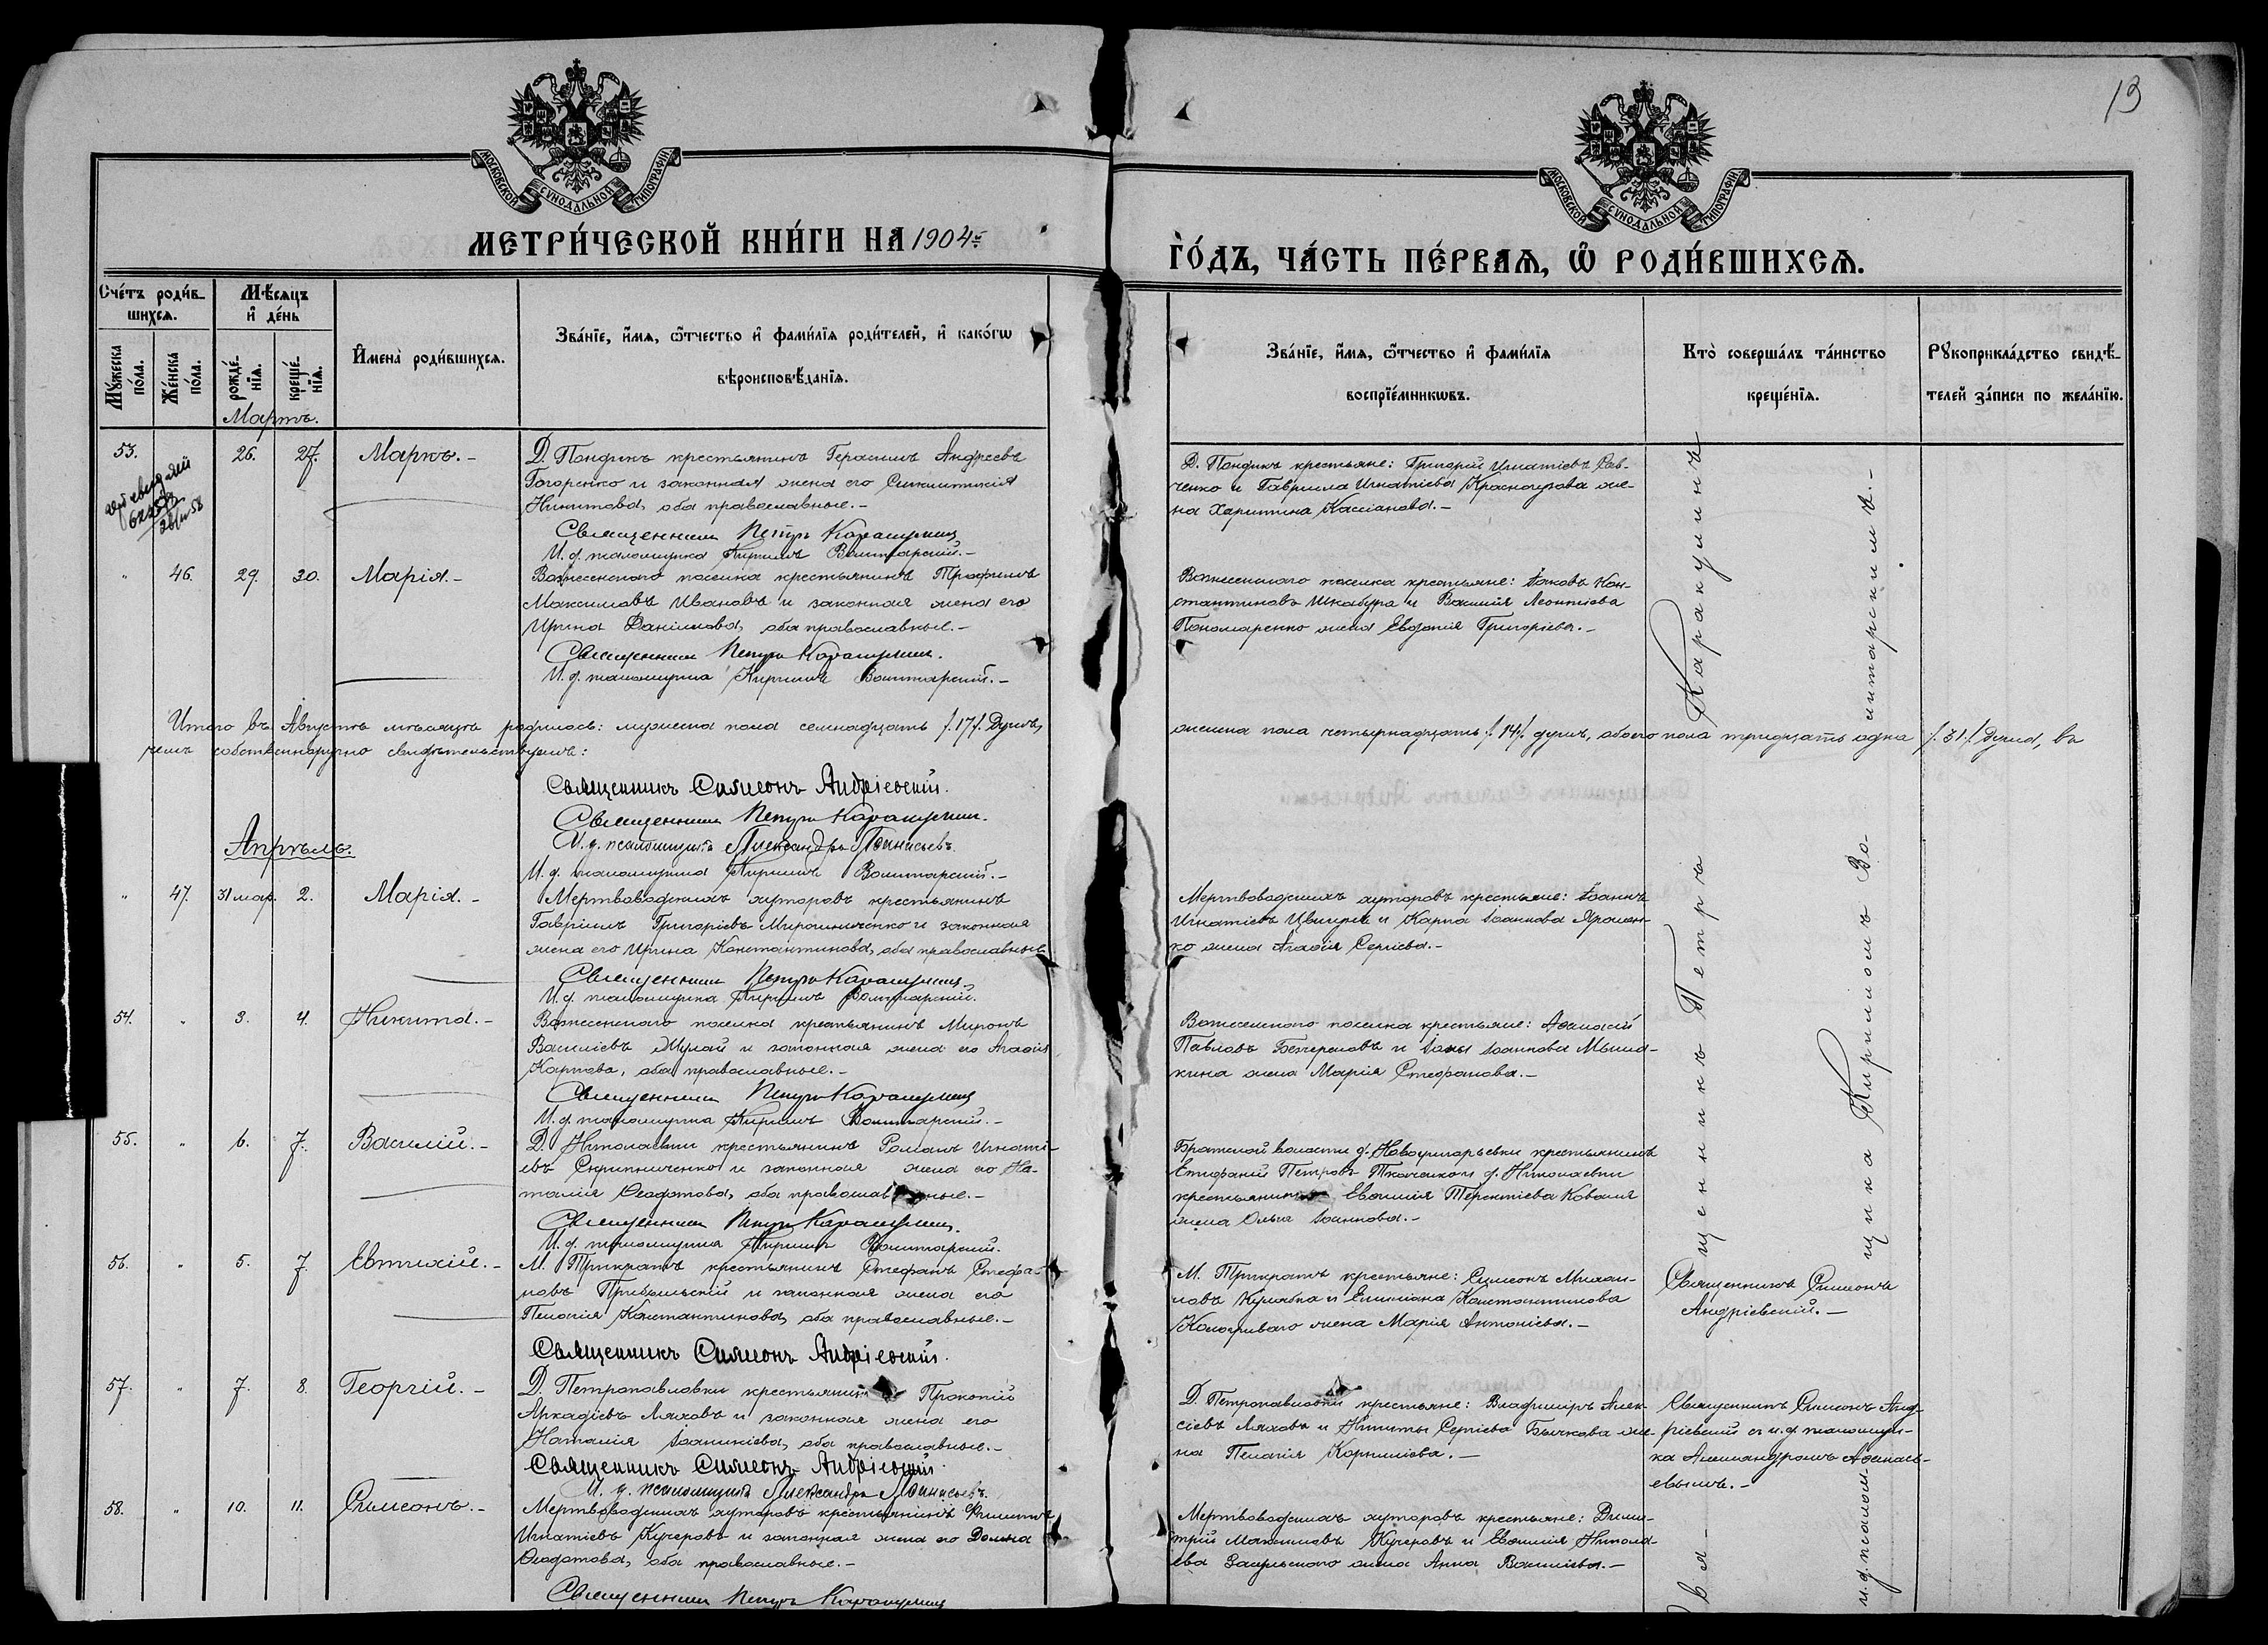 13
МОСКОВСКОЙ СУНОДАЛЬНОЙ ТИПОГРАФІИ
МОСКОВСКОЙ СУНОДАЛЬНОЙ ТИПОГРАФІИ
МЕТРИ́ЧЕСКОЙ КНИ́ГИ НА 1904й
ГО́ДЪ, ЧА́СТЬ ПЕ́РВАѦ, Ѽ РОДИ́ВШИХСѦ.
Сче́тъ роди́в-
шихсѧ.
Мꙋ́жеска по́ла.
Же́нска по́ла.
Мѣ́сѧцъ
и҆ де́нь
рожде́-
нїѧ.
креще́-
нїѧ.
И҆мена̀ роди́вшихсѧ.
Зва́нїе, и҆́мѧ, ѻ҆́тчество и҆ фами́лїѧ роди́телей, и҆ како́гѡ
вѣроисповѣ́данїѧ.
Зва́нїе, и҆́мѧ, ѻ҆́тчество и҆ фами́лїѧ
воспрїе́мникѡвъ.
Кто̀ соверша́лъ та́инство
креще́нїѧ.
Рꙋкоприкла́дство свидѣ́-
телей за́писи по жела́нїю.
Мартъ.
53. 26. 27. Маркъ.-
Д. Пондикъ крестьянинъ Герасимъ Андреевъ
Гогоренко и законная жена его Синклитикія
Никитова, оба православные.-
Священникъ Петръ Каракулинъ
И. д. псаломщика Кириллъ Воинтарскій.-
Д. Пондикъ крестьяне: Григорій Игнатіевъ Сав-
ченко и Гавріила Игнатіева Красногузова же-
на Харитина Кассіанова.-
" 46. 29. 30. Марія.-
Вознесенскаго поселка крестьянинъ Трофимъ
Максимовъ Ивановъ и законная жена его
Ирина Даніилова, оба православные.-
Священникъ Петръ Каракулинъ.
И. д. псаломщика Кириллъ Воинтарскій.-
Вознесенскаго поселка крестьяне: Іаковъ Кон-
стантиновъ Шкабура и Василія Леонтіева
Пономаренко жена Евдокія Григоріева.-
Итого въ Августѣ мѣсяцѣ родилось: мужеска пола семнадцать /.17/. душъ,
женска пола четырнадцать /.14/. душъ, обоего пола тридцать одна /.31/. душа, въ
чемъ собственноручно свидѣтельствуемъ:
Священникъ Симеонъ Андріевскій.
Священникъ Петръ Каракулинъ.
И. д. псаломщика Александръ Аѳанасьевъ.
И. д. псаломщика Кириллъ Воинтарскій.-
Апрѣль.
" 47. 31 мар. 2. Марія.-
Мертвоводскихъ хуторовъ крестьянинъ
Гавріилъ Григоріевъ Мирошниченко и законная
жена его Ирина Константинова, оба православные
Священникъ Петръ Каракулинъ
И. д. псаломщика Кириллъ Воинтарскій.
Мертвоводскихъ хуторовъ крестьяне: Іоаннъ
Игнатіевъ Цвигунъ и Карпа Іоаннова Яромен-
ко жена Агафія Сергіева.-
54. " 3. 4. Никита.-
Вознесенскаго поселка крестьянинъ Миронъ
Василіевъ Мулай и законная жена его Агафія
Карпова, оба православные.-
Священникъ Петръ Каракулинъ
И. д. псаломщика Кириллъ Воинтарскій.-
Вознесенскаго поселка крестьяне: Аѳанасій
Павловъ и Іоаннова
жена Марія Стефанова.-
55. " 6. 7. Василій.-
Д. Николаевки крестьянинъ Романъ Игнаті-
евъ Скрипниченко и законная жена его На-
талія Ѳеодотова, оба православные.-
Священникъ Петръ Каракулинъ.
И. д. псаломщика Кириллъ Воинтарскій.
Братской волости д. Новогригорьевки крестьянинъ
Епифаній Петровъ и д. Николаевки
крестьянина Евѳимія Терентіева Коваля
жена Ольга Іоаннова.-
56. " 5. 7. Евтихій.-
М. Трикратъ крестьянинъ Стефанъ Стефа-
новъ Прибыльскій и законная жена его
Пелагія Константинова, оба православные.-
Священникъ Симеонъ Андріевскій.
М. Трикратъ крестьяне: Симеонъ Михаи-
ловъ Кулябка и Емиліана Константинова
Кологриваго жена Марія Антоніева.-
Священникъ Симеонъ
Андріевскій.-
57. " 7. 8. Георгій.-
Д. Петропавловки крестьянинъ Прокопій
Аркадіевъ Ляховъ и законная жена его
Наталія Іоанникіева, оба православные.-
Священникъ Симеонъ Андріевскій.
И. д. псаломщика Александръ Аѳанасьевъ.
Д. Петропавловки крестьяне: Владиміръ Алек-
сіевъ Ляховъ и Никиты Сергіева Бычкова же-
на Пелагія Корниліова.-
Священникъ Симеонъ Анд-
ріевскій съ и. д. псаломщи-
ка Александромъ Аѳанась-
евымъ.-
58. " 10. 11. Симеонъ.-
Мертвоводскихъ хуторовъ крестьянинъ Филиппъ
Игнатіевъ Кучеровъ и законная жена его Домна
Ѳеодотова, оба православные.-
Священникъ Петръ Каракулинъ
Мертвоводскихъ хуторовъ крестьяне: Дими-
трій Максимовъ Кучеровъ и Евѳимія Никола-
ева Загульскаго жена Анна Василіева.-
Священникъ Петръ Каракулинъ
и. д. псаломщика Кирилломъ Воинтарскимъ.-